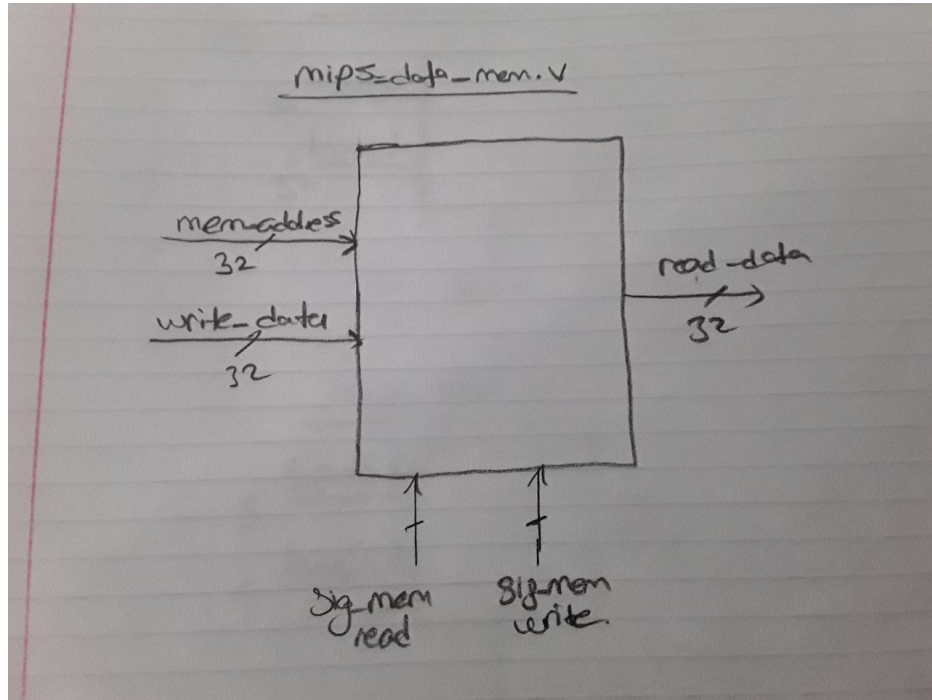 mips_data_mem.v
mem_address
32
write_data
32
read_data
32
sig_mem
read
sig_mem
write.